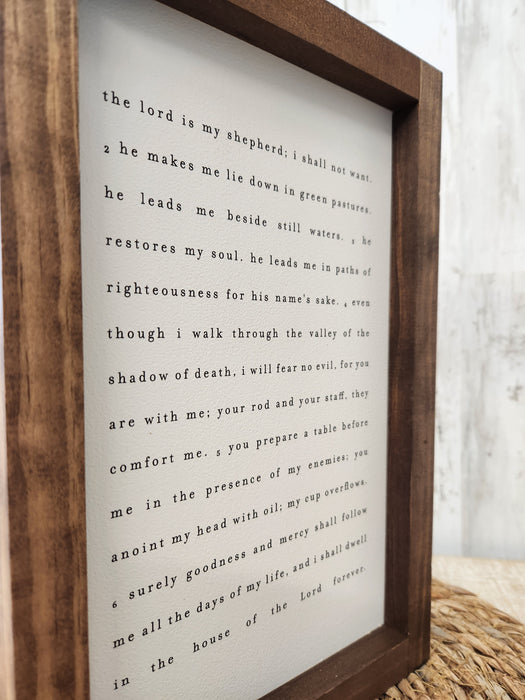 the lord is my shepherd; i shall not want.
2 he makes me lie down in green pastures.
he leads me beside still waters. 3 he
restores my soul. he leads me in paths of
righteousness for his name's sake. 4 even
though i walk through the valley of the
shadow of death, i will fear no evil, for you
are with me; your rod and your staff, they
comfort me. 5 you prepare a table before
me in the presence of my enemies; you
anoint my head with oil; my cup overflows.
6 surely goodness and mercy shall follow
me all the days of my life, and i shall dwell
in the house of the Lord forever.